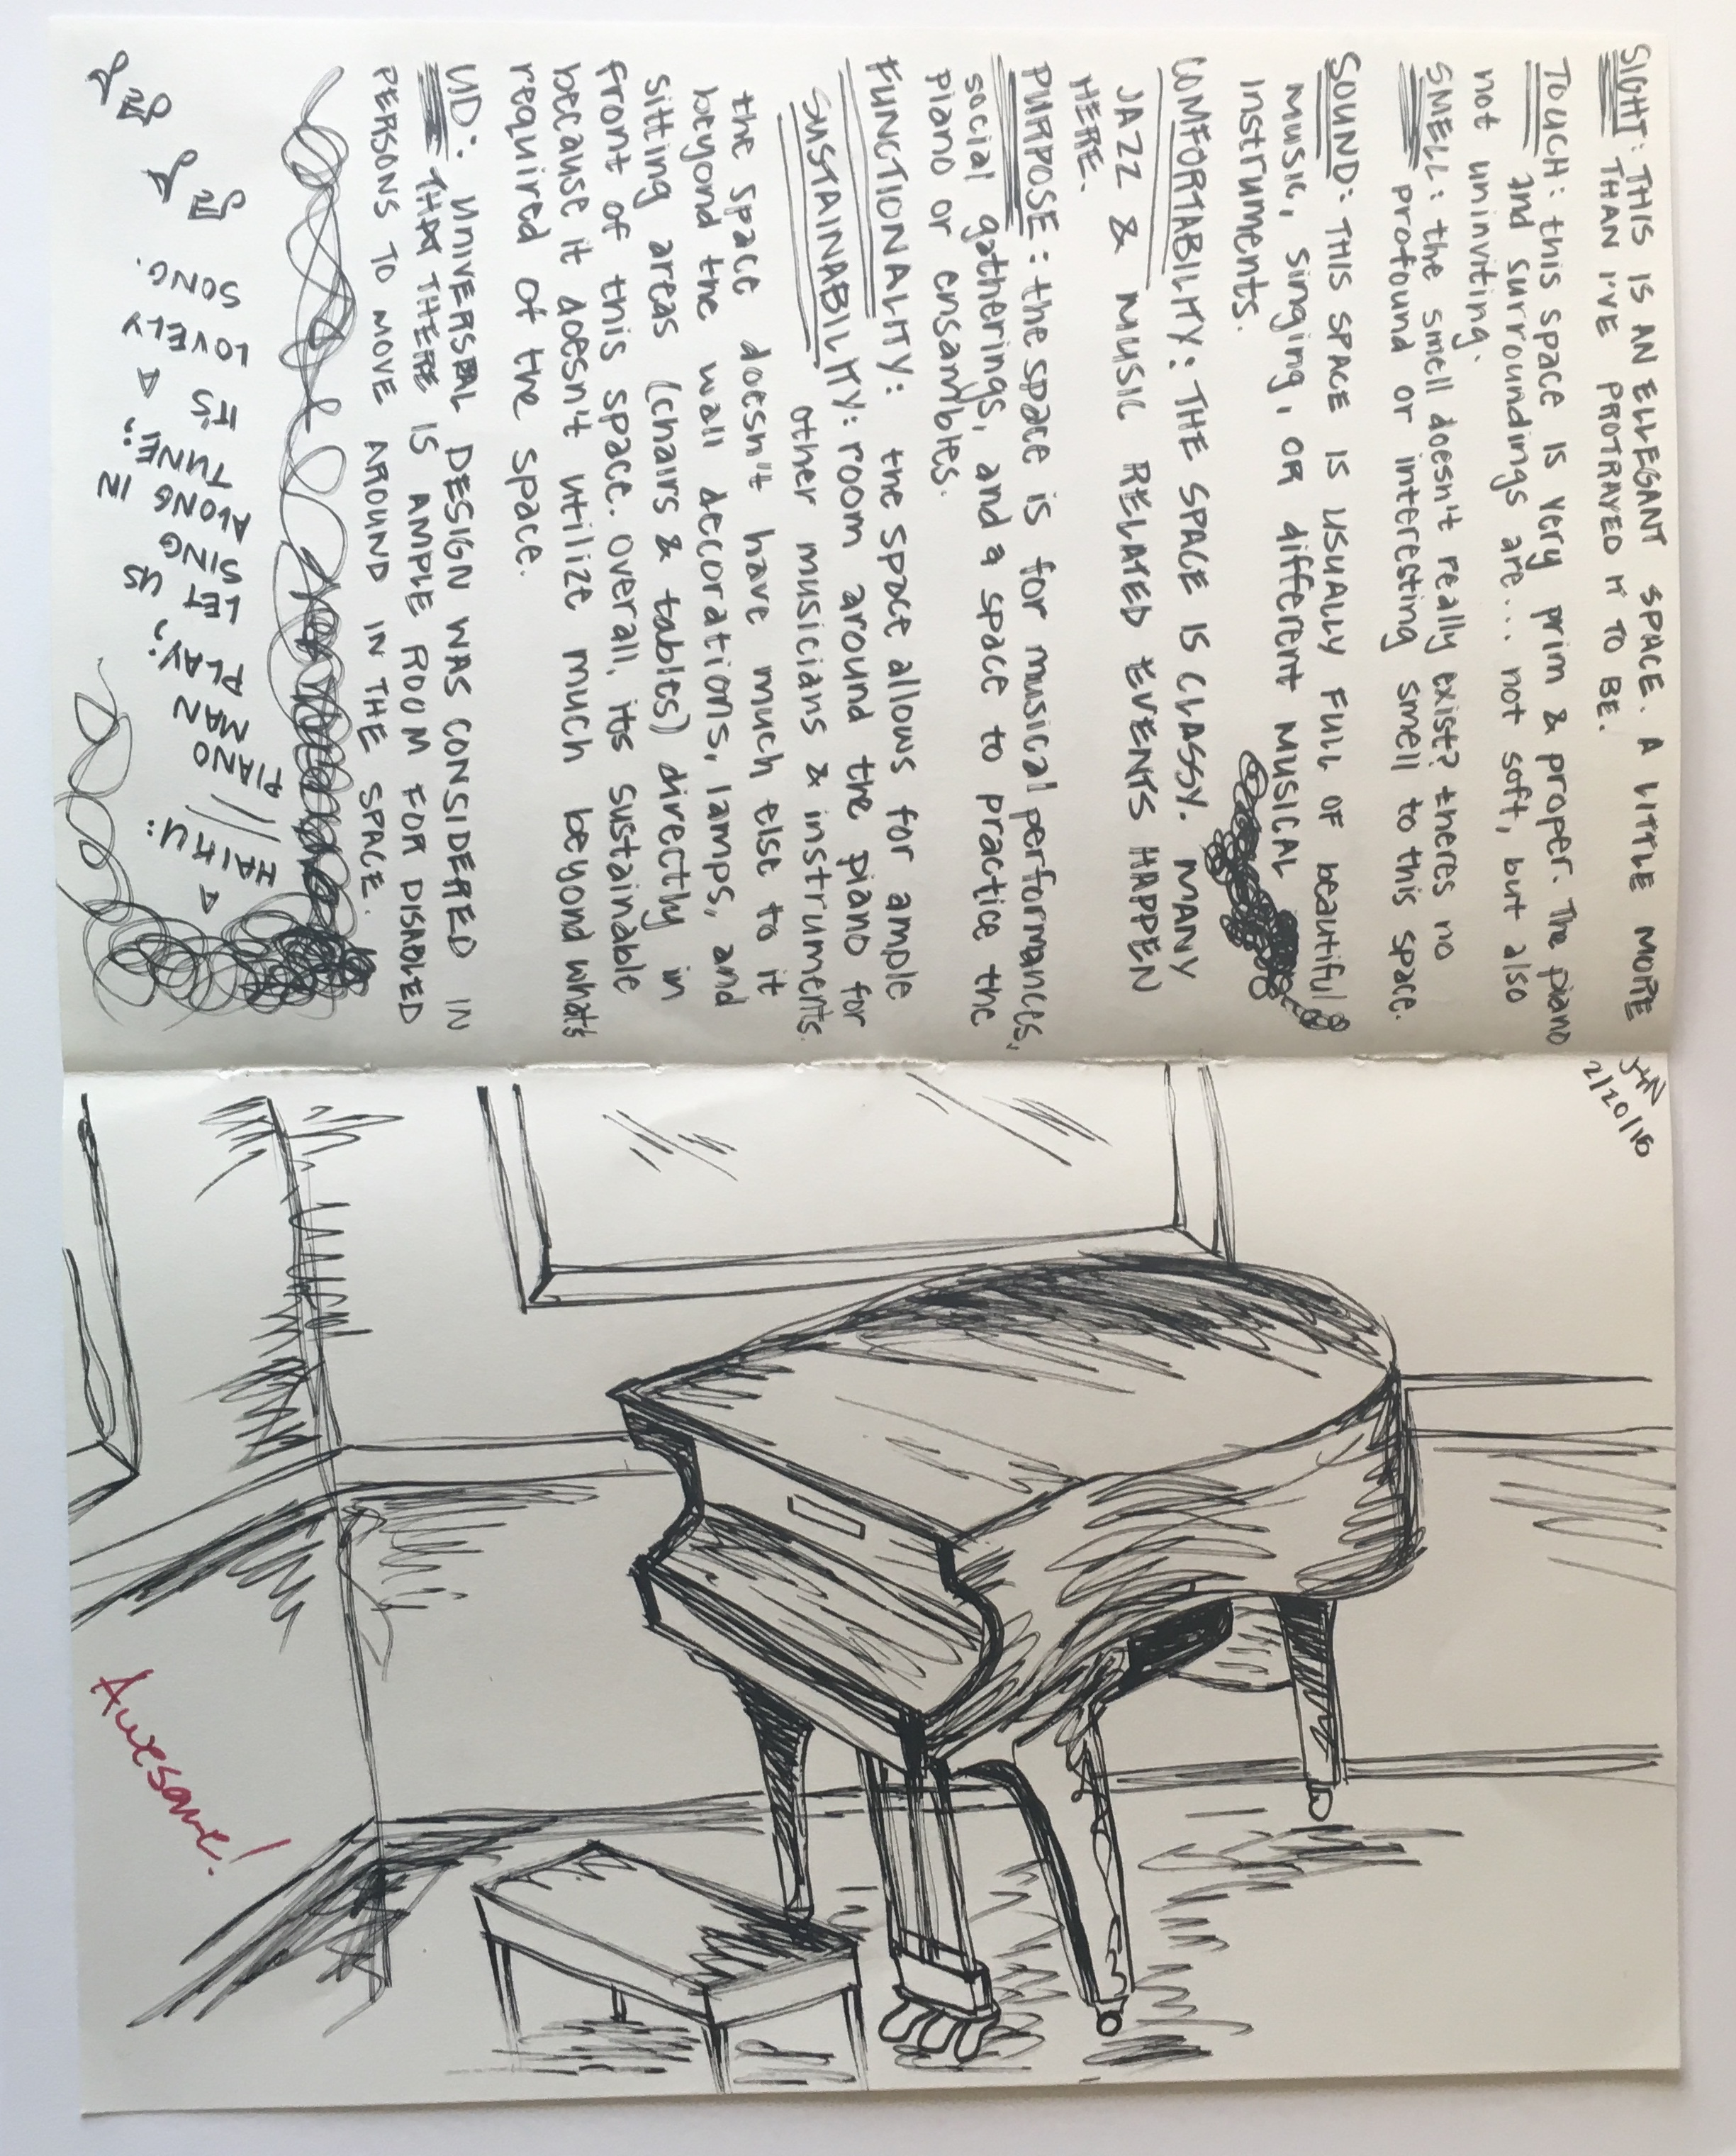 SIGHT: THIS IS AN ELLEGANT SPACE. A LITTLE MORE
THAN I'VE PROTRAYED IT TO BE.
TOUCH: this space is very prim & proper. The piano
and surroundings are... not soft, but also
not uninviting.
SMELL: the smell doesn't really exist? theres no
profound or interesting smell to this space.
SOUND: THIS SPACE IS USUALLY FULL OF beautiful
music, singing, OR different MUSICAL
instruments.
COMFORTABILITY: THE SPACE IS CLASSY. MANY
JAZZ & MUSIC RELATED EVENTS HAPPEN
HERE.
PURPOSE: the space is for musical performances,
social gatherings, and a space to practice the
piano or ensambles.
FUNCTIONALITY: the space allows for ample
room around the piano for
other musicians & instruments.
SUSTAINABILITY:
the space doesn't have much else to it
beyond the wall decorations, lamps, and
sitting areas (chairs & tables) directly in
front of this space. overall, its sustainable
because it doesn't utilize much beyond what's
required of the space.
UD: UNIVERSAL DESIGN WAS CONSIDERED IN
THAT THERE IS AMPLE ROOM FOR DISABLED
PERSONS TO MOVE AROUND IN THE SPACE.
A
HAIKU:
// PIANO
MAN
PLAY?
LET US
SING
ALONG IN
TUNE..
IT'S
A
LOVELY
SONG.
2/20/16
Awesome!